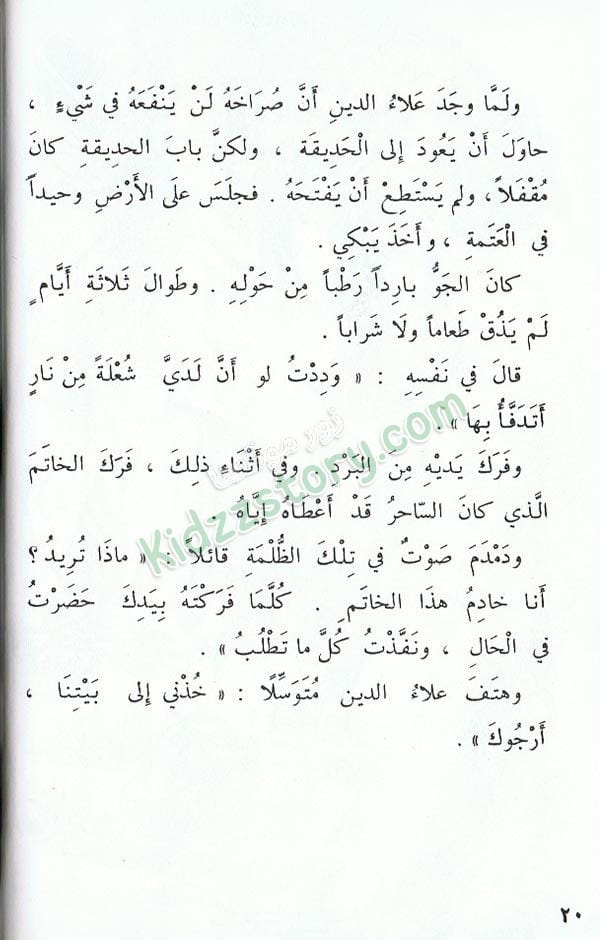 ولَمَّا وجَدَ عَلاءُ الدينِ أَنَّ صُرَاخَهُ لَنْ يَنْفَعَهُ في شَيْءٍ ،
حاوَلَ أَنْ يَعُودَ إِلى الْحَدِيقَة ، ولكنَّ بابَ الحديقةِ كانَ
مُقْفَلاً ، ولم يَسْتَطِعْ أَنْ يَفْتَحَهُ . فجلَسَ علَى الأَرْضِ وحيداً
في الْعَتمةِ ، وأَخَذَ يَبْكِي .
كانَ الجَوُّ بارِداً رَطْباً مِنْ حَوْلِهِ . وطَوالَ ثَلاثَةِ أَيَّامٍ
لَمْ يَذُقْ طَعاماً ولَا شَراباً .
قالَ في نَفْسِهِ : « وَدِدْتُ لو أَنَّ لَدَيَّ شُعْلَةً مِنْ نَارٍ
أَتَدَفَّأُ بِهَا » .
وفَرَكَ يَدَيْهِ مِنَ البَرْدِ . وفي أَثْنَاءِ ذلِكَ ، فَرَكَ الخاتَمَ
الَّذي كانَ السّاحرُ قَدْ أَعْطَاهُ إِيَّاهُ .
ودَمْدَمَ صَوْتٌ في تِلْكَ الظُّلْمَةِ قائلاً : « ماذَا تُرِيدُ ؟
أَنا خادِمُ هذا الخاتَمِ . كُلَّمَا فَرَكْتَهُ بِيَدِكَ حَضَرْتُ
في الْحَالِ ، ونَفَّذْتُ كُلَّ ما تَطْلُبُ » .
وهتَفَ علاءُ الدين مُتَوَسِّلًا : « خُذْني إِلى بَيْتِنَا ،
أَرْجُوكَ » .
Kidzzstory.com
٢٠